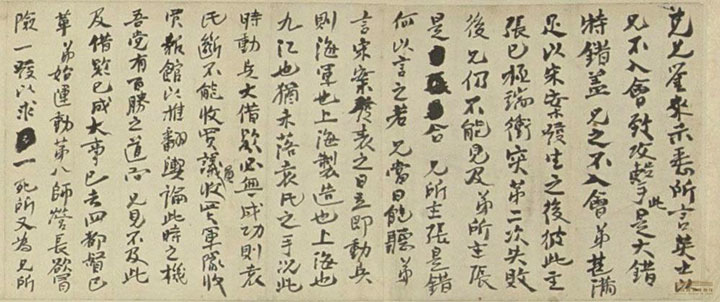 克兄鑒來示悉所言英士以
兄不入會致攻擊此是大錯
特錯蓋兄之不入會弟甚滿
足以宋案發生之後彼此主
張已極端衝突第二次失敗
後兄仍不能見及弟所主張
是合兄所主張是錯
何以言之若兄當日能聽弟
言宋案發表之日立即動兵
則海軍也上海製造也上海也
九江也猶未落袁氏之手況此
時動兵大借款必無成功則袁
氏斷不能收買議員收買軍隊收
買報館以推翻輿論此時之機
吾党有百勝之道而兄見不及此
及借款已成大事已去四都督已
革弟始運動第八師營長欲冒
險一發以求一死所又為兄所